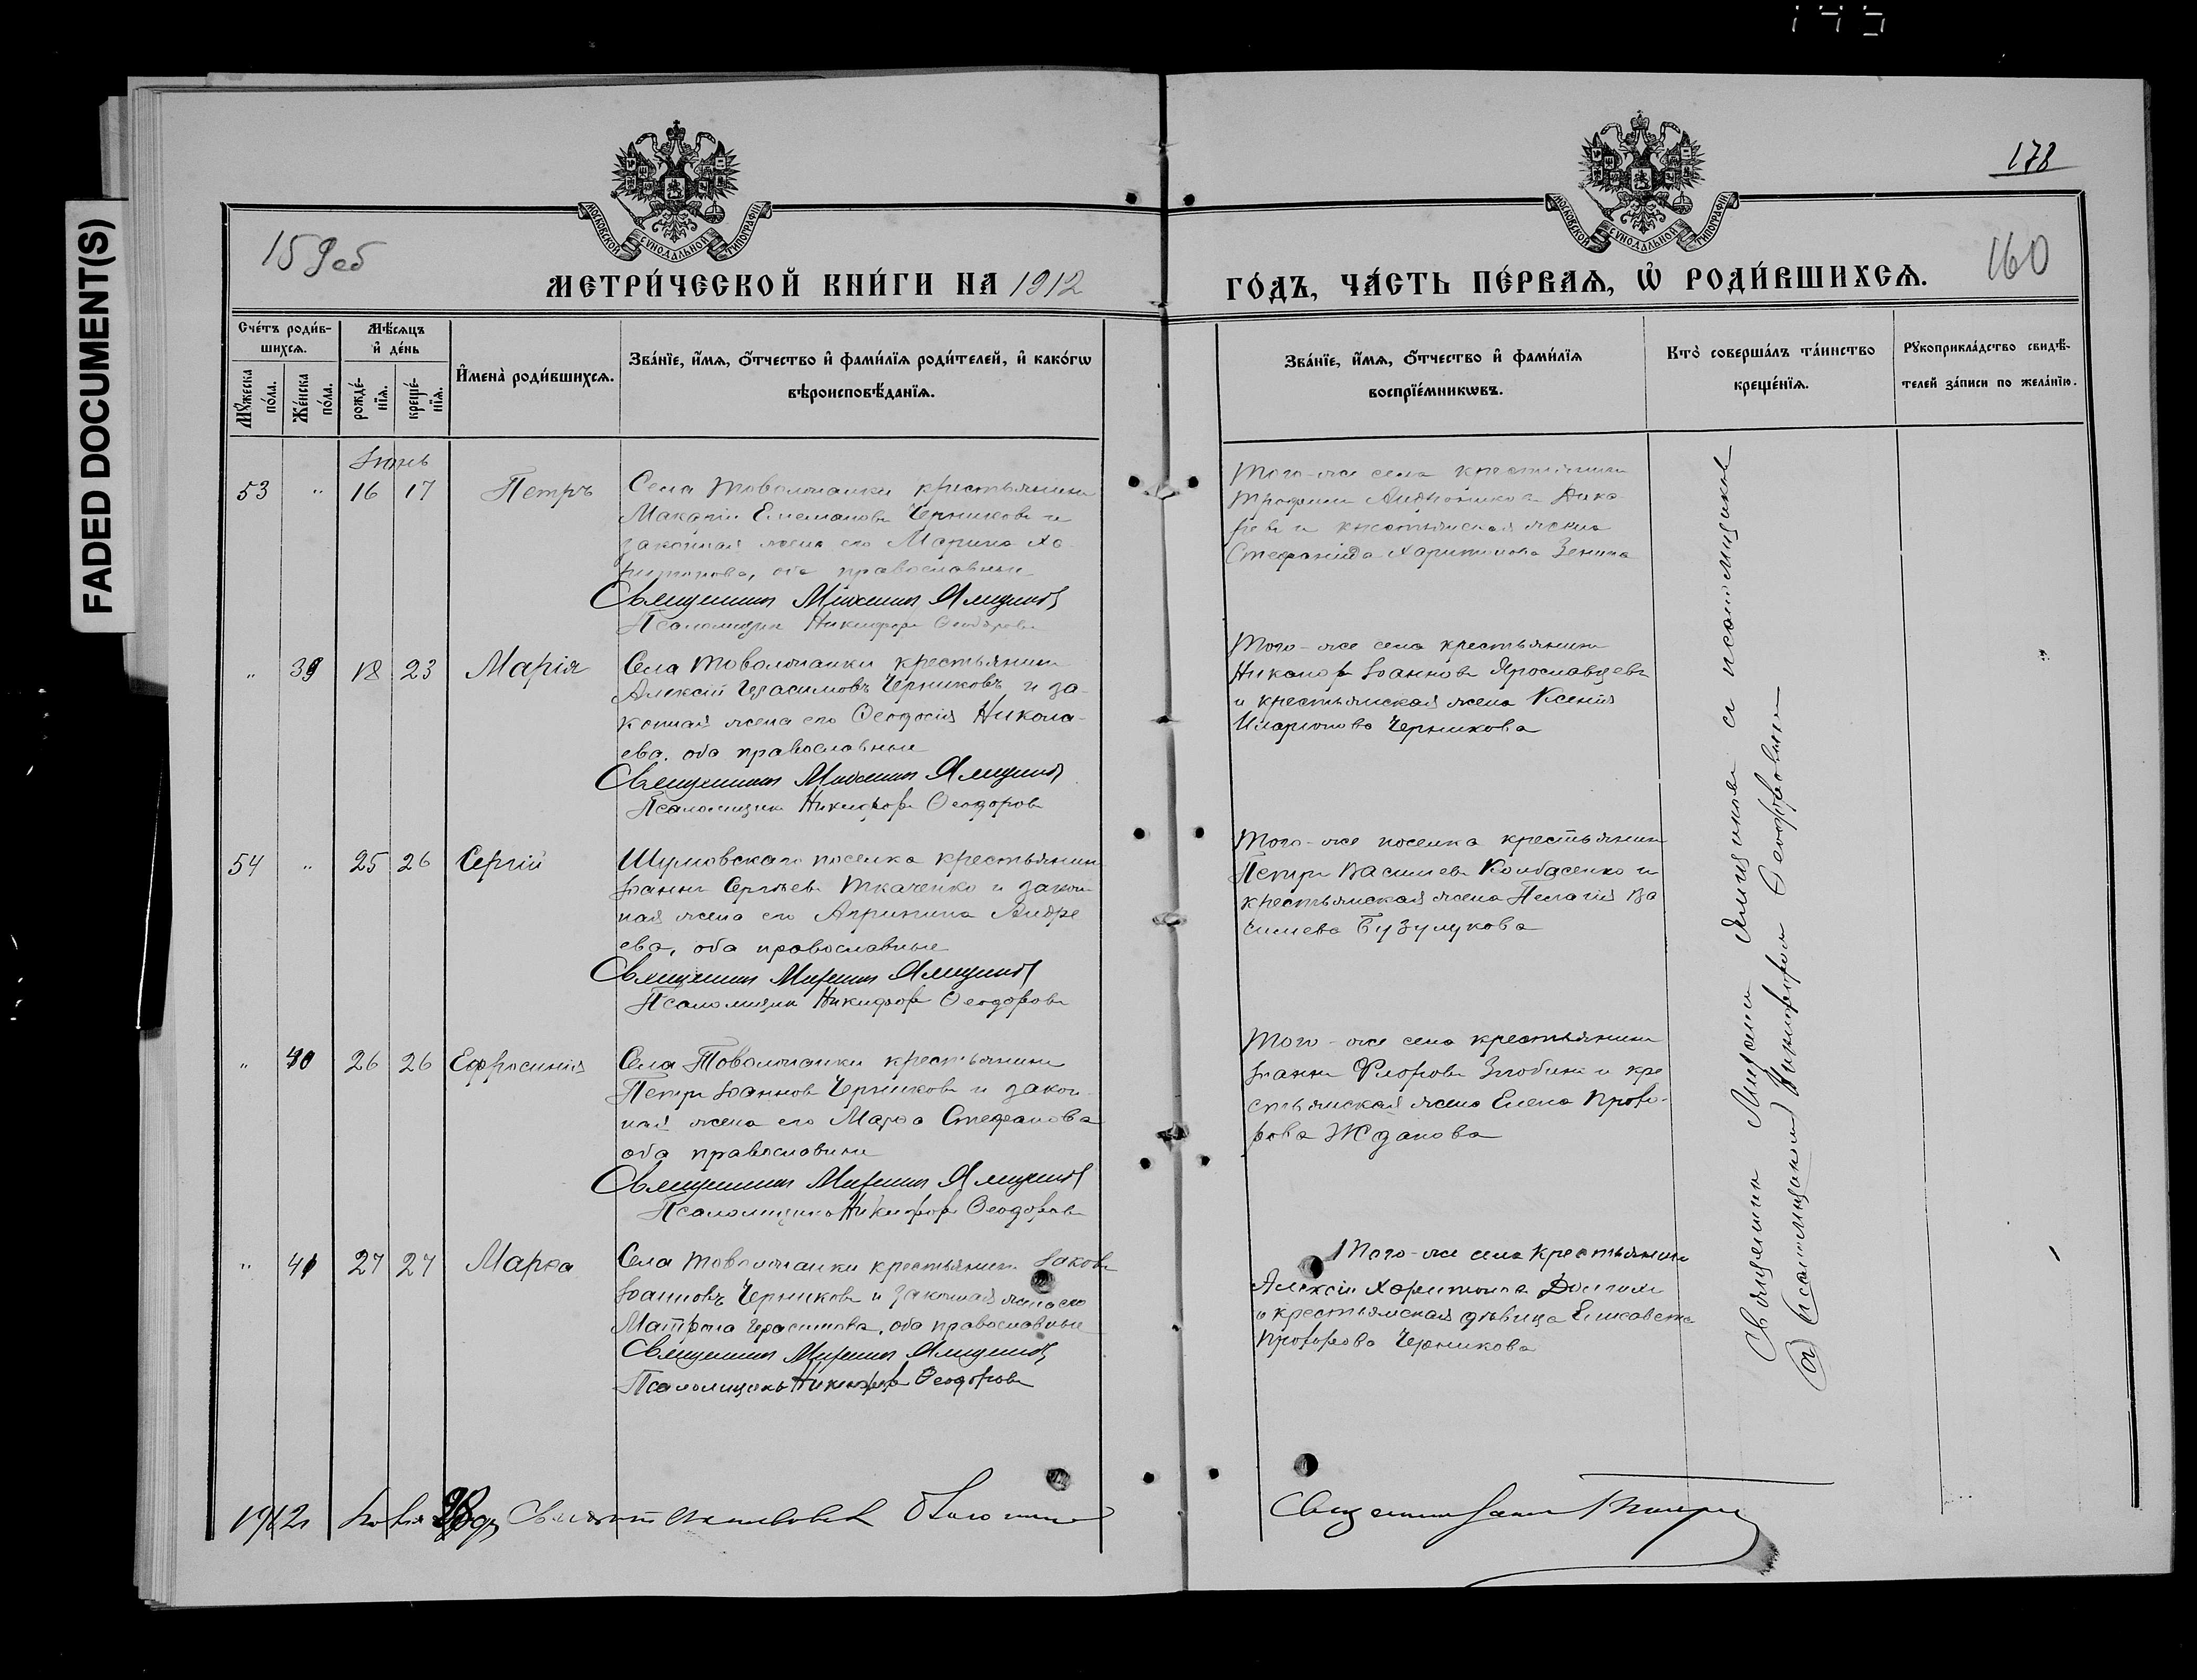 FADED DOCUMENT(S)
178
160
МОСКОВСКОЙ СУНОДАЛЬНОЙ ТИПОГРАФІИ
МОСКОВСКОЙ СУНОДАЛЬНОЙ ТИПОГРАФІИ
МЕТРИ́ЧЕСКОЙ КНИ́ГИ НА 1912
ГО́ДЪ, ЧА́СТЬ ПЕ́РВАѦ, Ѽ РОДИ́ВШИХСѦ.
Сче́тъ роди́в-
шихсѧ.
Мѣ́сѧцъ
и҆ де́нь
Мꙋ́жеска
по́ла.
Же́нска
по́ла.
рожде́-
нїѧ.
креще́-
нїѧ.
И҆мена̀ роди́вшихсѧ.
Зва́нїе, и҆́мѧ, ѻ҆́тчество и҆ фами́лїѧ роди́телей, и҆ како́гѡ
вѣроисповѣ́данїѧ.
Зва́нїе, и҆́мѧ, ѻ҆́тчество и҆ фами́лїѧ
воспрїе́мникѡвъ.
Кто̀ соверша́лъ та́инство
креще́нїѧ.
Рꙋкоприкла́дство свидѣ́-
телей за́писи по жела́нїю.
Іюнь
53 " 16 17 Петръ
Села Товолжанки крестьянинъ
Макарій Емельяновъ Черниковъ и
законная жена его Марина Ха-
ритонова, оба православные
Священникъ
Псаломщикъ Никифоръ Ѳеодоровъ
Того-же села крестьянинъ
Трофимъ Андрониковъ
и крестьянская жена
Стефанида Харитонова Зенина
" 39 18 23 Марія
Села Товолжанки крестьянинъ
Алексій Герасимовъ Черниковъ и за-
конная жена его Ѳеодосія Никола-
ева, оба православные
Священникъ
Псаломщикъ Никифоръ Ѳеодоровъ
Того-же села крестьянинъ
Никаноръ Іоанновъ Ярославцевъ
и крестьянская жена Ксенія
Иларіонова Черникова
54 " 25 26 Сергій
Шумовскаго поселка крестьянинъ
Іоаннъ Сергѣевъ Ткаченко и закон-
ная жена его Агрипина Андре
ева, оба православные
Священникъ
Псаломщикъ Никифоръ Ѳеодоровъ
Того-же поселка крестьянинъ
Петръ Васильевъ Колбасенко и
крестьянская жена Пелагія Ва
сильева Бузулукова
" 40 26 26 Евфросинія
Села Товолжанки крестьянинъ
Петръ Іоанновъ Черниковъ и закон-
ная жена его Марѳа Стефанова
оба православные
Священникъ
Псаломщикъ Никифоръ Ѳеодоровъ
Того-же села крестьянинъ
Іоаннъ Флоровъ Злобинъ и кре
стьянская жена Елена Прохо-
рова Жданова
" 41 27 27 Марѳа
Села Товолжанки крестьянинъ Іаковъ
Іоанновъ Черниковъ и законная жена его
Матрона Герасимова, оба православные
Священникъ
Псаломщикъ Никифоръ Ѳеодоровъ
Того-же села крестьянинъ
Алексій Харитоновъ
и крестьянская дѣвица Елисавета
Прохорова Черникова
Священникъ съ псаломщикомъ
Никифоромъ Ѳеодоровымъ
1912
Священникъ